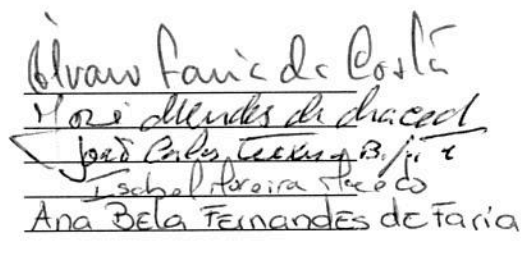 Álvaro Faria da Costa
José Mendes de Macedo
João Carlos
Isabel Moreira Macedo
Ana Bela Fernandes de Faria